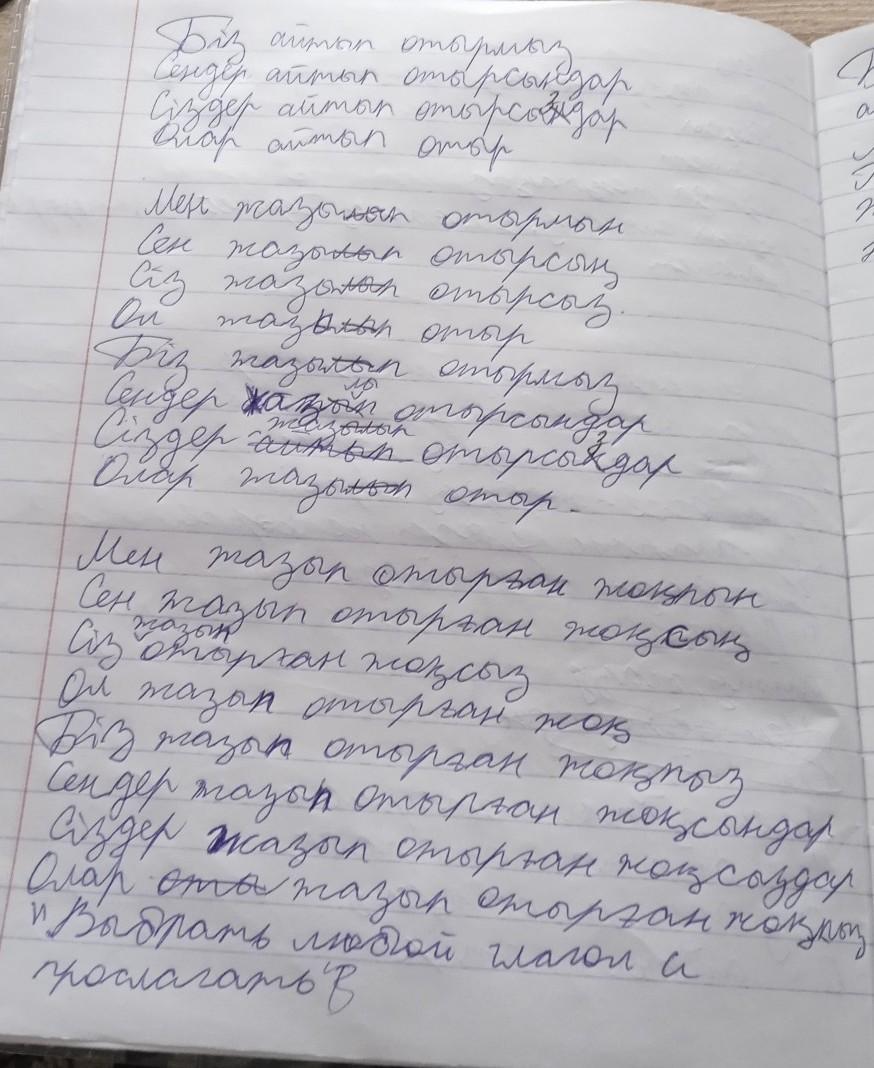 Біз айтып отырмыз
Сендер айтып отырсыңдар
Сіздер айтып отырсыздар
Олар айтып отыр
Мен жазып отырмын
Сен жазып отырсың
Сіз жазып отырсыз.
Ол жазып отыр
Біз жазып отырмыз
Сендер жазып отырсыңдар
Сіздер жазып отырсыздар
Олар жазып отыр.
Мен жазып отырған жоқпын
Сен жазып отырған жоқсың
Сіз жазып отырған жоқсыз
Ол жазып отырған жоқ
Біз жазып отырған жоқпыз
Сендер жазып отырған жоқсыңдар
Сіздер жазып отырған жоқсыздар
Олар жазып отырған жоқпыз
"Выбрать любой глагол и
прослагать"